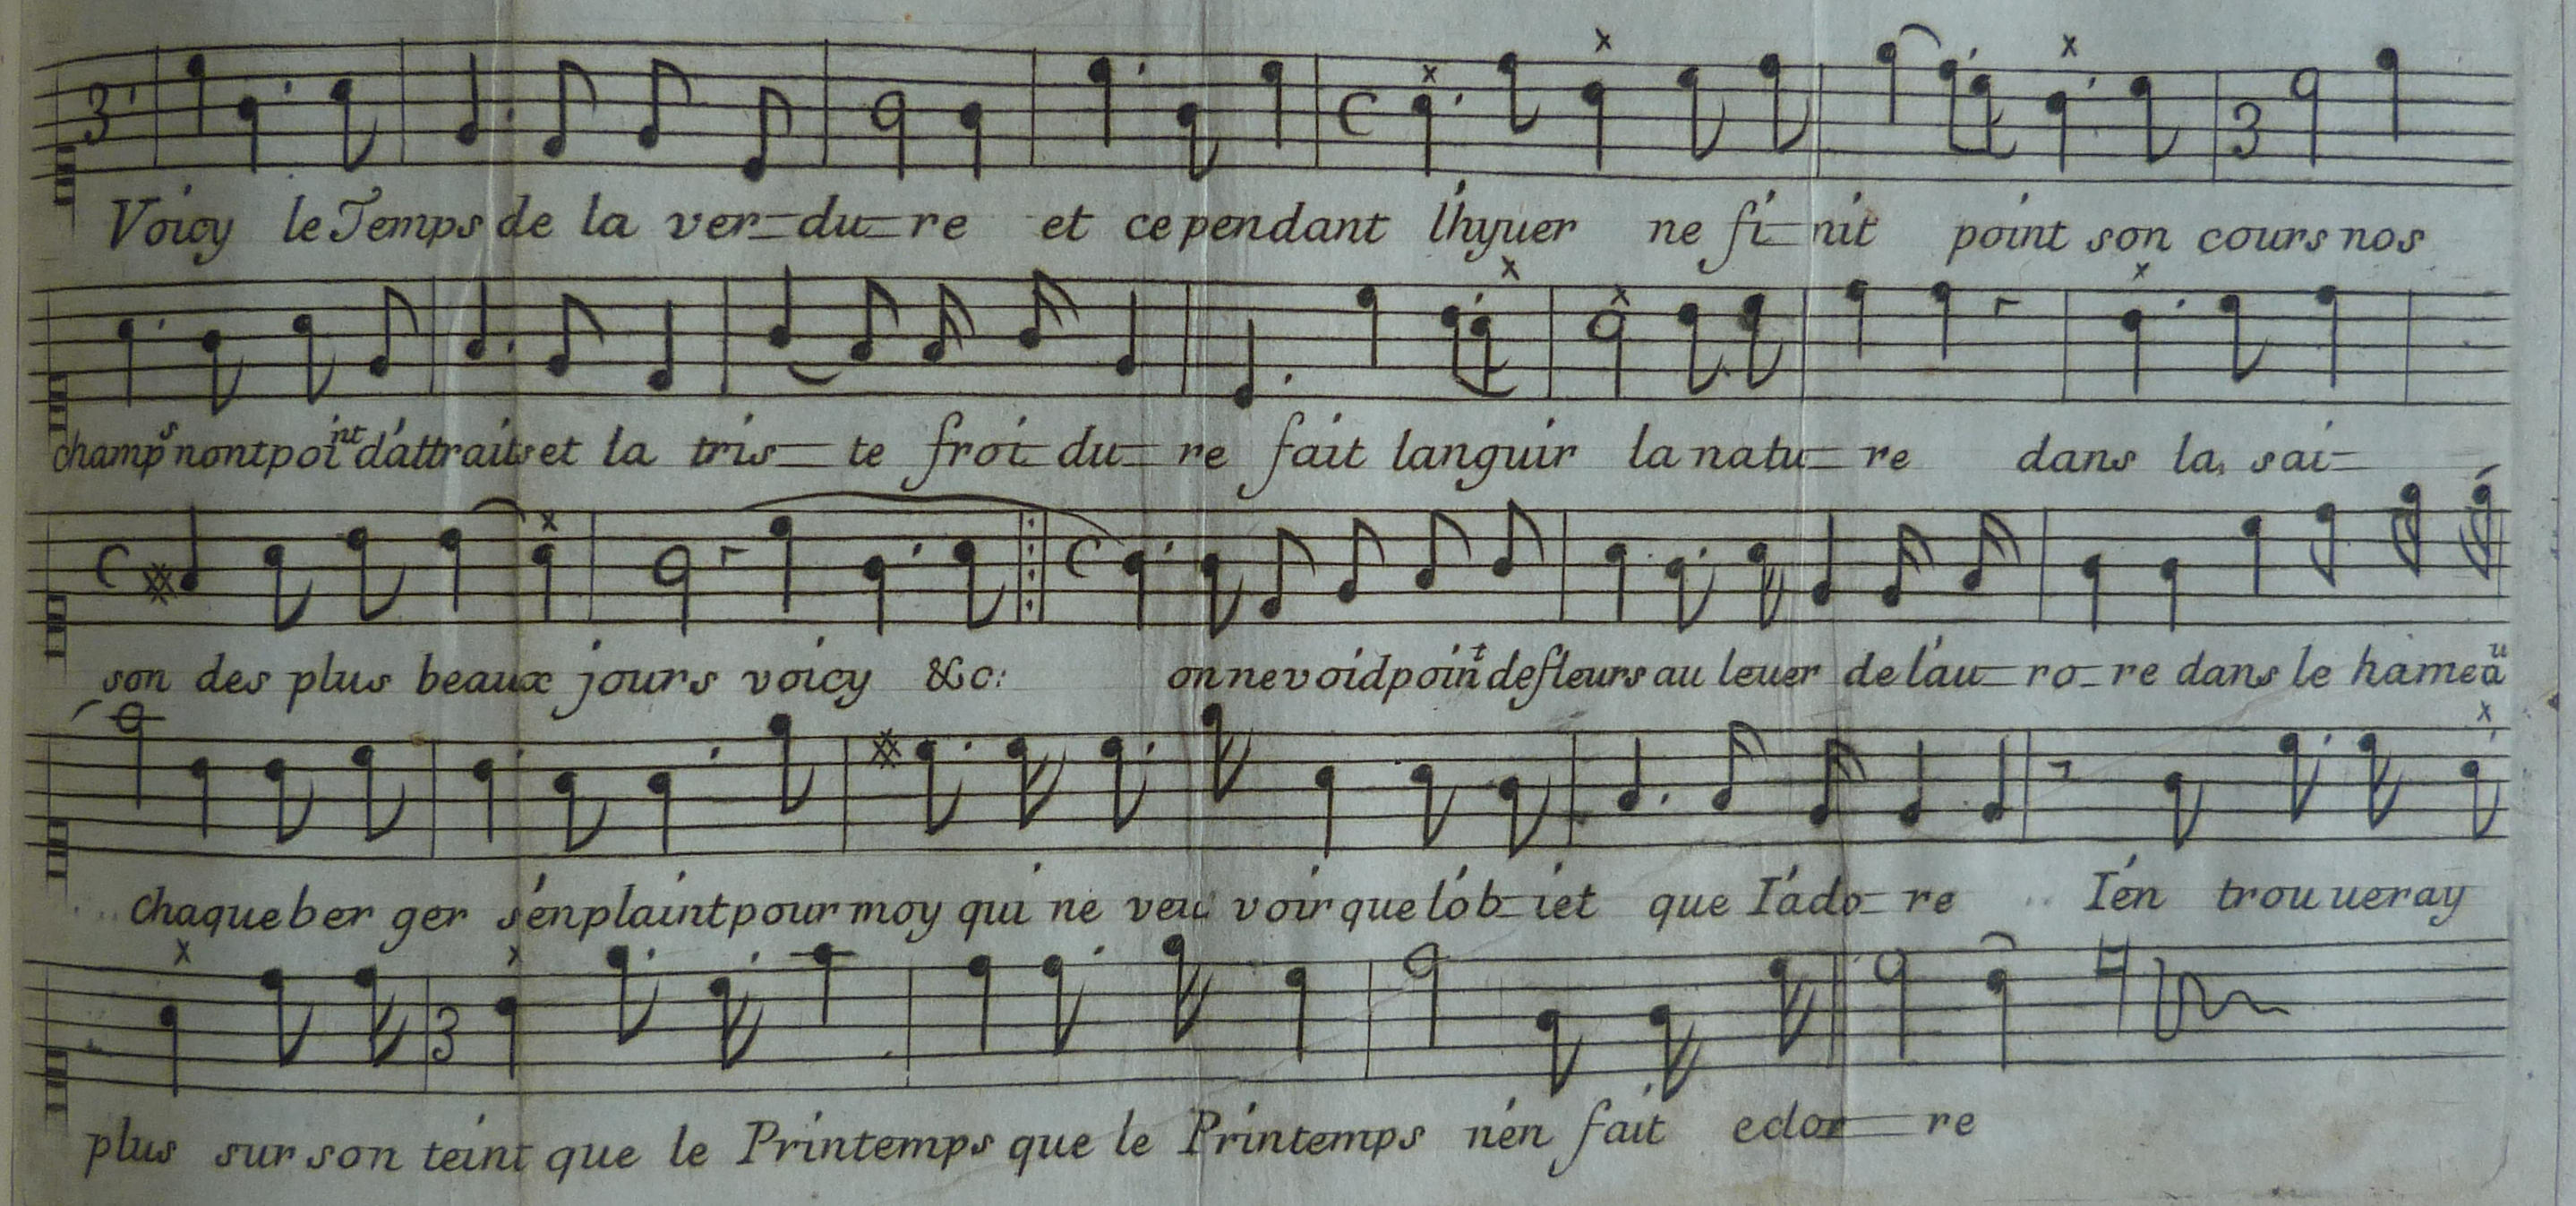 Voicy le Temps de la ver-du-re et cependant l'hyuer ne fi-nit point son cours nos
champs nont point d'attraits et la tris-te froi-du-re fait languir la natu-re dans la sai-
son des plus beaux jours voicy &c: on ne void point de fleurs au leuer de l'au-ro-re dans le hameau
chaque ber ger s'en plaint pour moy qui ne veu voir que l'ob-iet que I'ado-re I'en trou ueray
plus sur son teint que le Printemps que le Printemps n'en fait eclor-re